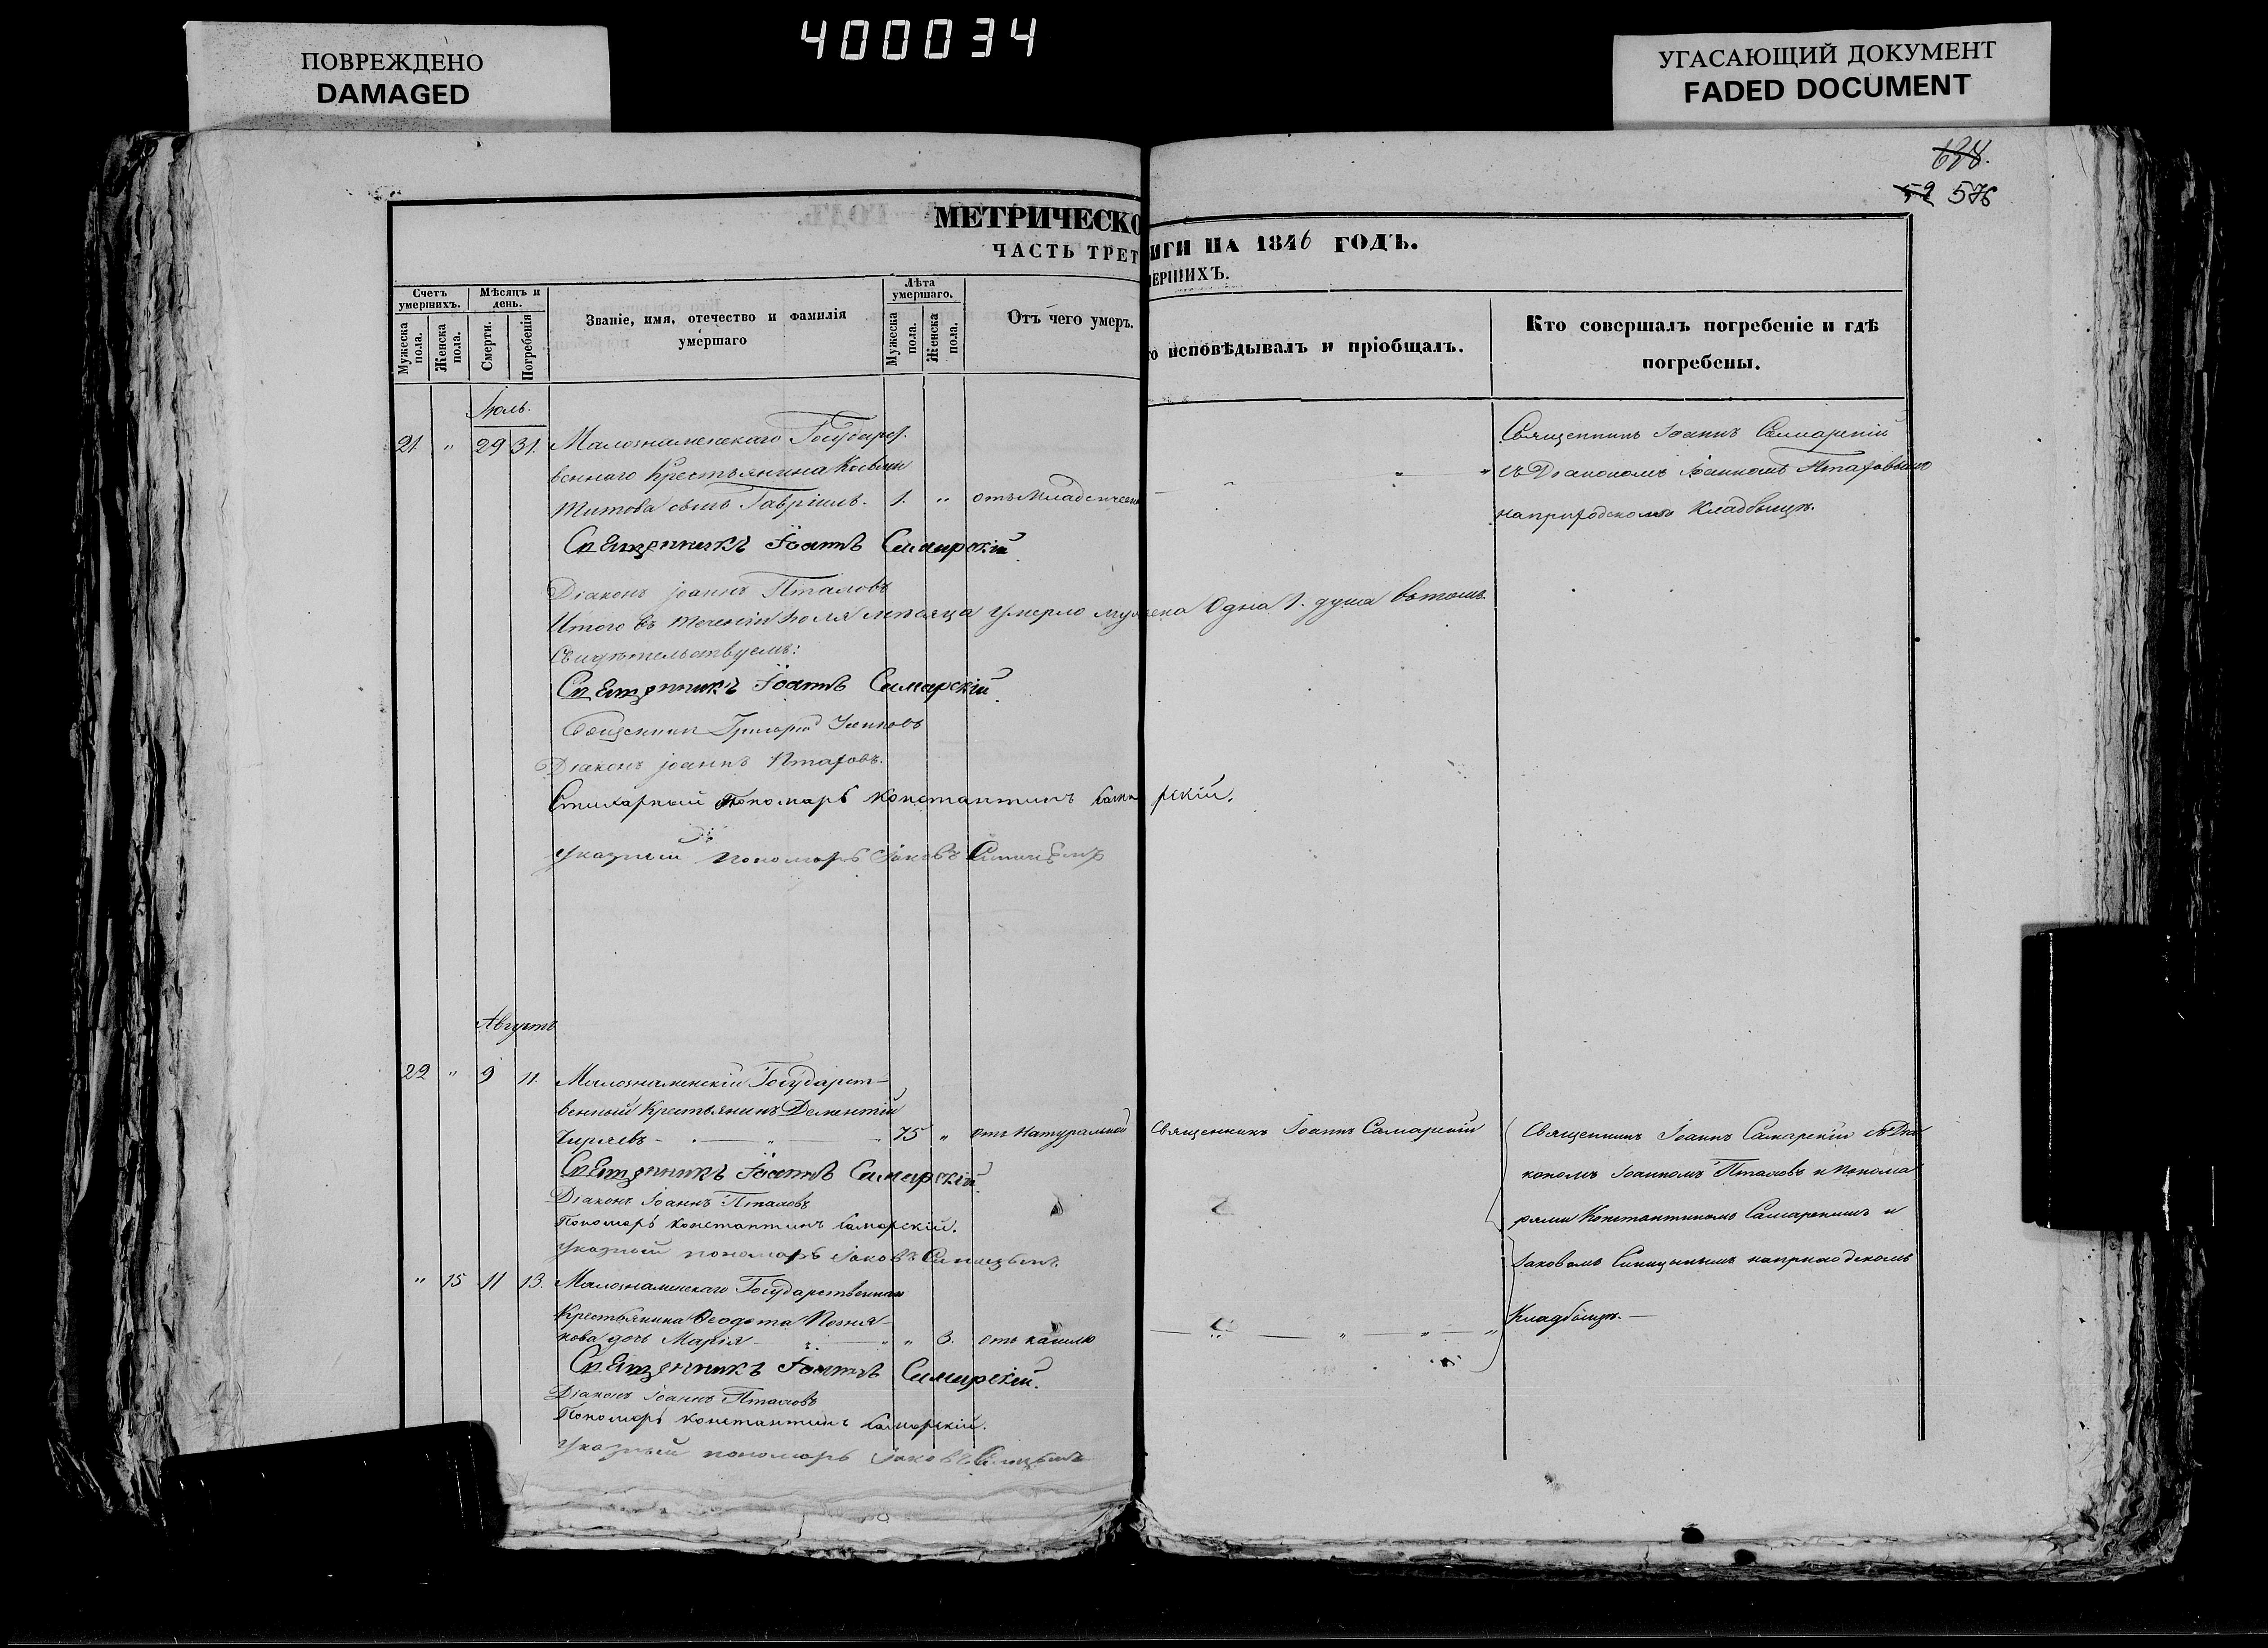 ПОВРЕЖДЕНО
DAMAGED
400034
УГАСАЮЩИЙ ДОКУМЕНТ
FADED DOCUMENT
576
МЕТРИЧЕСКО
ИГИ НА 1846 ГОДЪ.
ЧАСТЬ ТРЕТ
МЕРШИХЪ.
Счетъ умершихъ.
Мужеска пола.
Женска пола.
Мѣсяцъ и день.
Смерти.
Погребенія
Званіе, имя, отечество и фамилія
умершаго
Лѣта умершаго.
Мужеска пола.
Женска пола.
Отъ чего умеръ.
о исповѣдывалъ и пріобщалъ.
Кто совершалъ погребеніе и гдѣ
погребены.
Іюль.
21. " 29 31. Малознаменскаго Государст-
веннаго Крестьянина
Титова сынъ Гавріилъ. 1. " отъ Младенческ
Священникъ Іоаннъ Самарскій
съ Діакономъ Іоанномъ Пталовымъ
на приходскомъ Кладбищѣ.
Священникъ Іоаннъ Самарскій.
Діаконъ Іоаннъ Пталовъ
Итого въ теченіи Іюля мѣсяца умерло мужеска Одна 1. душа въ томъ
Свидѣтельствуемъ:
Священникъ Іоаннъ Самарскій.
Священникъ Григорій
Діаконъ Іоаннъ Пталовъ.
Стихарный Пономарь Константинъ Самарскій.
Указный пономарь Іаковъ Синицынъ
Августъ
22 " 9 11. Малознаменскій Государст-
венный Крестьянинъ Дементій
Чиряевъ - 75 " отъ Натуральной Священникъ Іоаннъ Самарскій
Священникъ Іоаннъ Самарскій съ Діа
кономъ Іоанномъ Пталовъ и Понома
рями Константиномъ Самарскимъ и
Іаковомъ Синицынымъ на приходскомъ
Кладбищѣ. -
Священникъ Іоаннъ Самарскій.
Діаконъ Іоаннъ Пталовъ
Пономарь Константинъ Самарскій.
Указный пономарь Іаковъ Синицынъ.
" 15 11 13. Малознаменскаго Государственнаго
Крестьянина Ѳеодота Позня-
кова дочь Марія - " 3. отъ кашлю
Священникъ Іоаннъ Самарскій.
Діаконъ Іоаннъ Пталовъ
Пономарь Константинъ Самарскій.
Указный пономарь Іаковъ Синицынъ